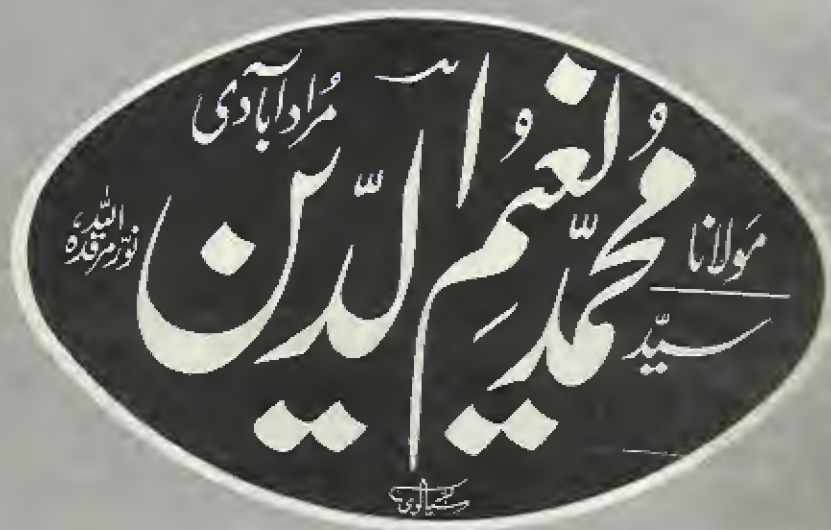 مولانا
سیّد
محمّد نُعیم الدّین
مُراد آبادی
نوّر اللہ مرقدہ